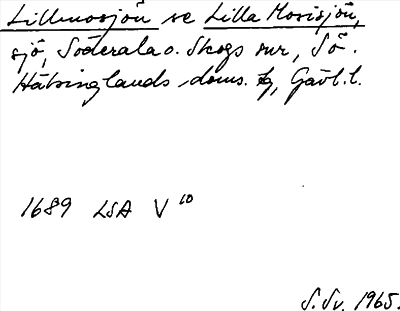 Lillmosjön se Lilla Mosisjön,
sjö, Söderala o. Skogs snr, Sö.
Hälsinglands doms. tg, Gävl. l.
1689 LSA V 10
S. Sv. 1965.